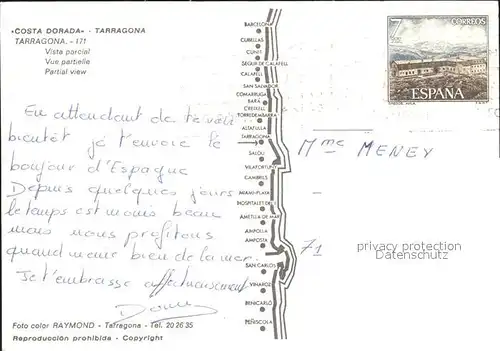 «COSTA DORADA» - TARRAGONA
TARRAGONA. - 171
Vista parcial
Vue partielle
Partial view
En attendant de te voir
bientôt je t'envoie le
bonjour d'Espagne
Depuis quelques jours
le temps est moins beau
mais nous profitons
quand meme bien de la mer.
Je t'embrasse affectueusement
Foto color RAYMOND - Tarragona - Tel. 20 26 35
Reproducción prohibida - Copyright
BARCELONA
CUBELLAS
CUNIT
SEGUR DE CALAFELL
CALAFELL
SAN SALVADOR
COMARRUGA
BARÁ
CREIXELL
TORREDEMBARRA
ALTAFULLA
TARRAGONA
SALOU
VILAFORTUNY
CAMBRILS
MIAMI-PLAYA
HOSPITALET DE
AMETLLA DE MAR
AMPOLLA
AMPOSTA
SAN CARLOS
VINAROZ
BENICARLÓ
PEÑISCOLA
7
PTAS
CORREOS
ESPAÑA
Mme MENEY
71
privacy protection
watermark